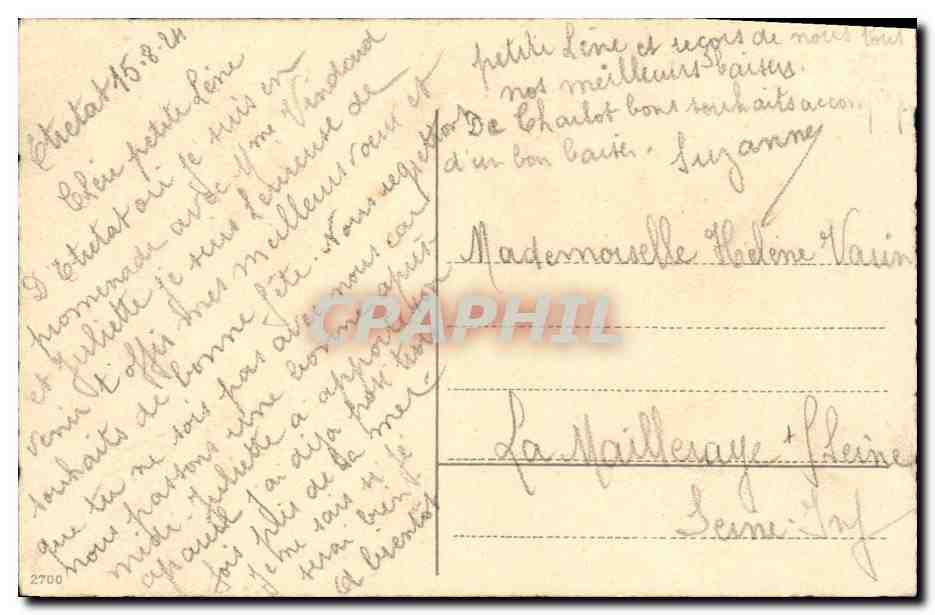 Etretat 15-8-24
Chère petite Lène
D'Etretat où je suis en
promenade avec Mme Vindard
et Juliette je suis heureuse de
venir t'offrir mes meilleurs voeux et
souhaits de bonne fête. Nous regrettons
que tu ne sois pas avec nous car
nous passons une bonne après-
midi. Juliette a apporté son
appareil j'ai déjà posé trois
fois près de la mer.
Je ne sais si je
serai bien
A bientôt
petite Lène et reçois de nous tous
nos meilleurs baisers.
De Charlot bons souhaits accompagnés
d'un bon baiser.
Suzanne
Mademoiselle Hélène Vasin
La Mailleraye s/Seine
Seine-Inf
CRAPHIL
2700